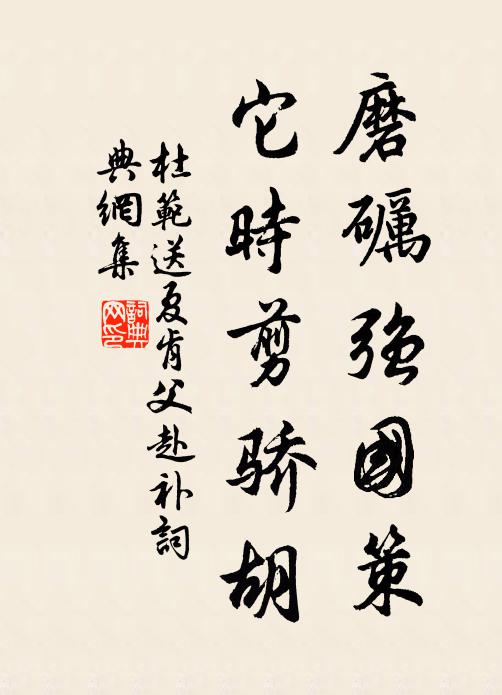 磨礪強國策
它時剪骄胡
杜範送夏肯父赴补詞
典網集
詞典
网印